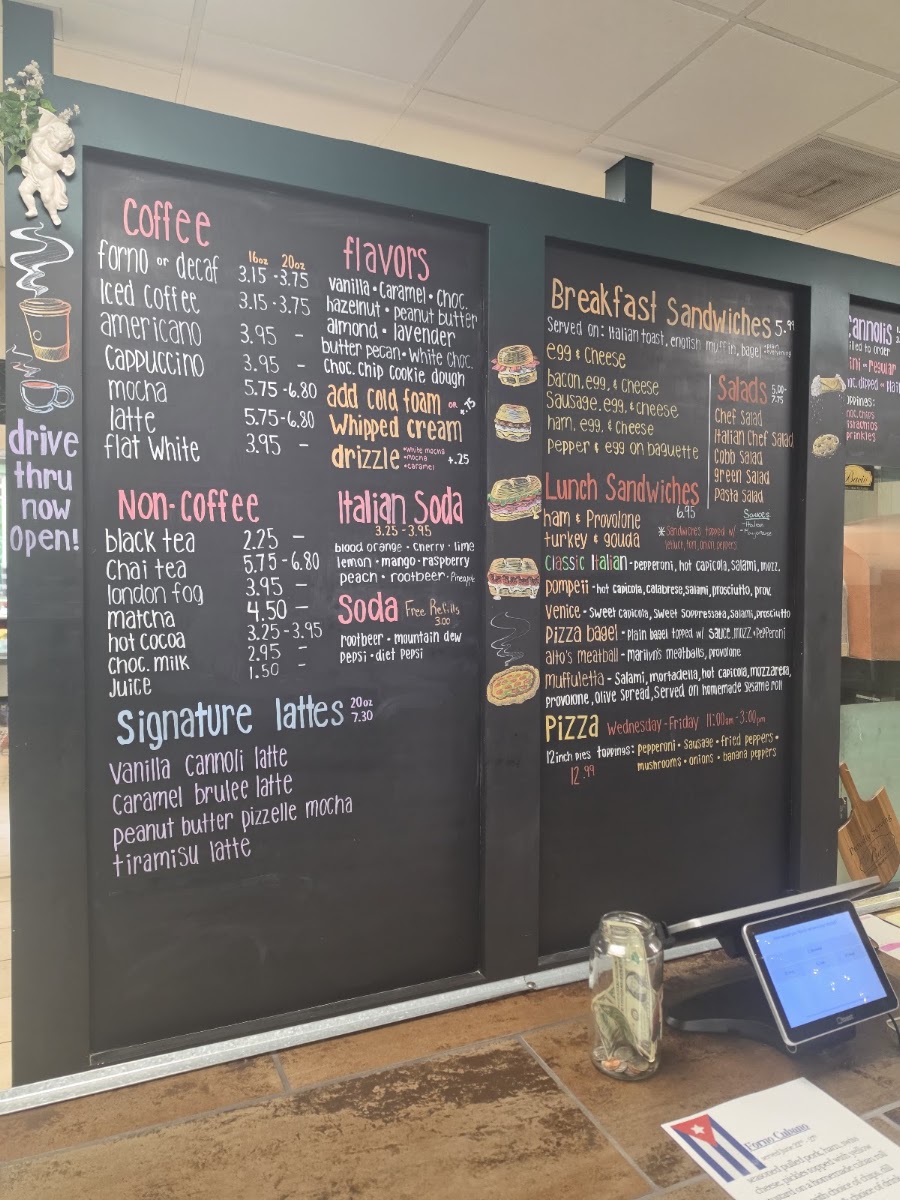 Coffee
16oz 20oz
forno or decaf 3.15 - 3.75
Iced Coffee 3.15 - 3.75
americano 3.95 -
Cappuccino 3.95 -
mocha 5.75 - 6.80
latte 5.75 - 6.80
flat white 3.95 -
flavors
vanilla • Caramel • Choc.
hazelnut • peanut butter
almond • lavender
butter pecan • White Choc.
Choc. Chip Cookie dough
add cold foam or +.75
Whipped cream
drizzle •white mocha •mocha •caramel +.25
Non-Coffee
black tea 2.25 -
Chai tea 5.75 - 6.80
london fog 3.95 -
matcha 4.50 -
hot cocoa 3.25 - 3.95
choc. milk 2.95 -
Juice 1.50 -
Italian Soda
3.25 - 3.95
blood orange • Cherry • lime
lemon • mango • raspberry
peach • rootbeer • Pineapple
Soda Free Refills
3.00
rootbeer • mountain dew
pepsi • diet pepsi
Signature lattes 20oz 7.30
Vanilla Cannoli latte
Caramel brulee latte
peanut butter pizzelle mocha
tiramisu latte
drive
thru
now
Open!
Breakfast Sandwiches 5.99
Served on: Italian toast, english muffin, bagel
egg & Cheese
bacon, egg, & Cheese
Sausage, egg, & Cheese
ham, egg, & Cheese
pepper & egg on baguette
Salads 5.00-7.75
Chef Salad
Italian Chef Salad
Cobb Salad
green Salad
pasta Salad
Lunch Sandwiches
6.95
ham & Provolone
turkey & gouda
*Sandwiches topped w/
lettuce, tom, onion, peppers
Sauces
Classic Italian - pepperoni, hot capicola, Salami, mozz.
pompeii - hot capicola, calabrese, salami, prosciutto, prov.
Venice - Sweet capicola, Sweet Soppressata, Salami, prosciutto
pizza bagel - plain bagel topped w/ sauce, mozz + pepperoni
alto's meatball - marilyn's meatballs, provolone
muffuletta - Salami, mortadella, hot capicola, mozzarella,
provolone, olive Spread, Served on homemade Sesame roll
Pizza Wednesday - Friday 11:00am - 3:00pm
12inch pies toppings: pepperoni • Sausage • fried peppers •
mushrooms • onions • banana peppers
12.99
Cannolis
Forno Cubano